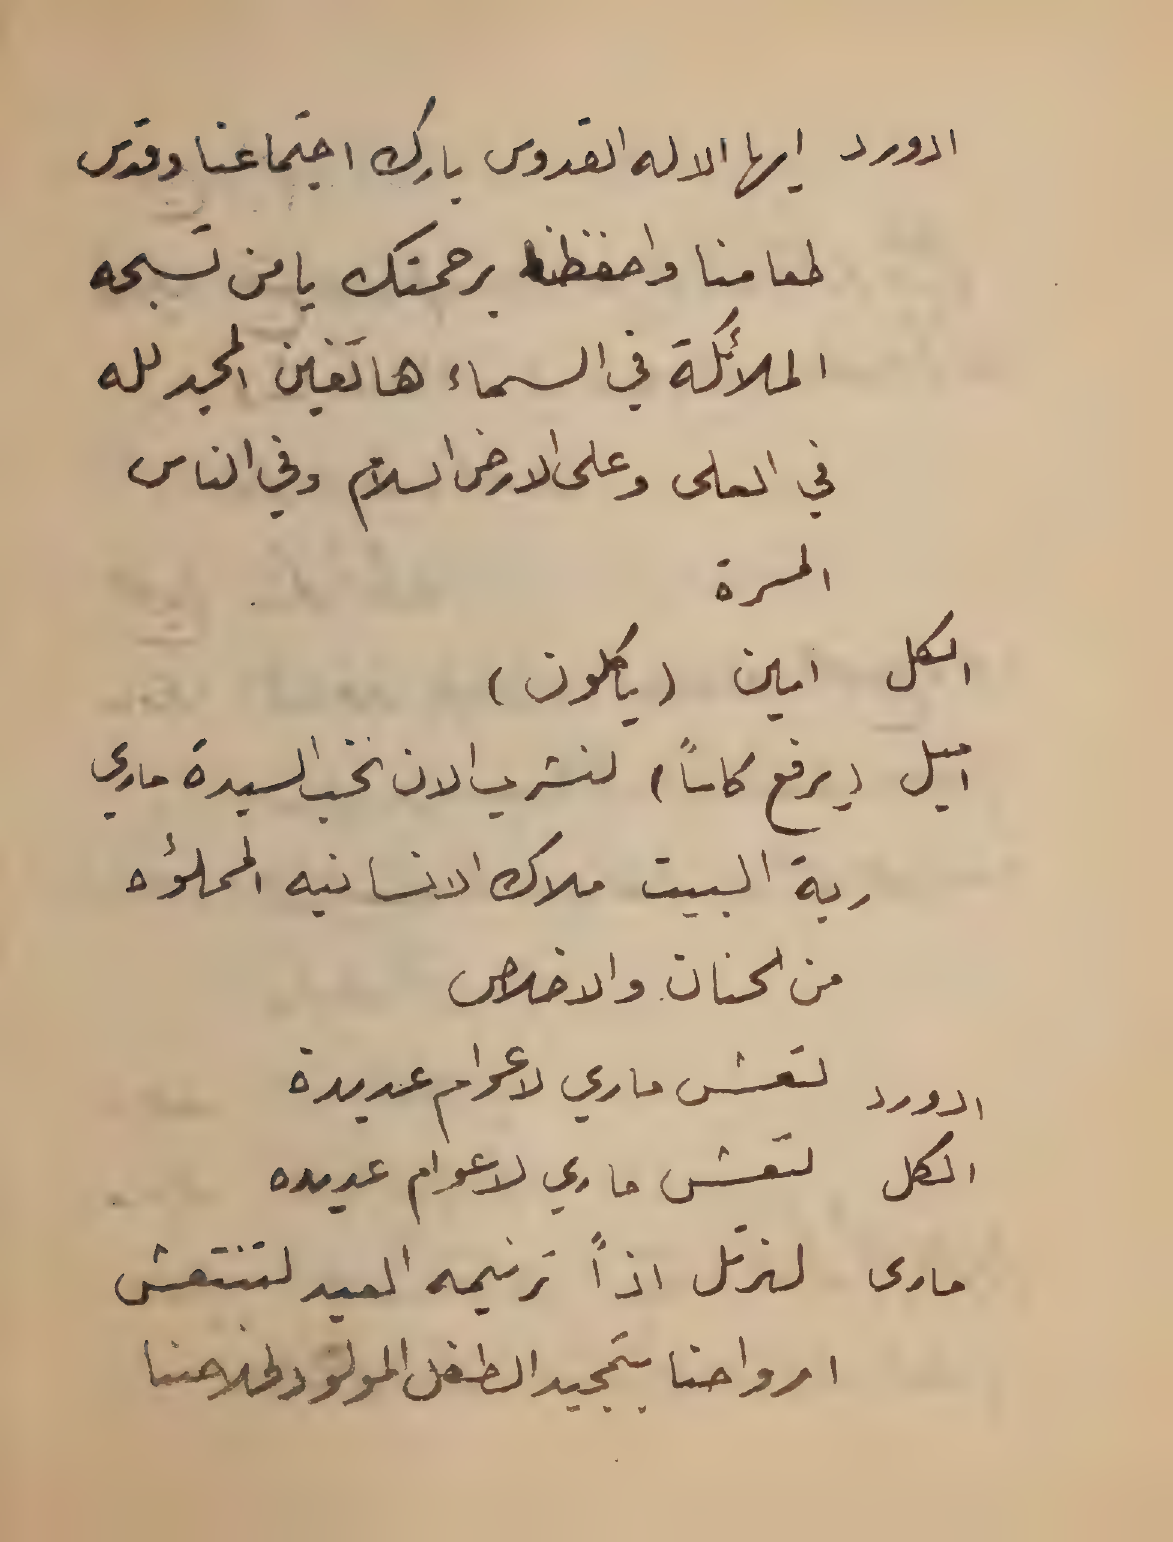 ادورد ايها الاله القدوس بارك اجتماعنا وقدس
طعامنا واحفظنا برحمتك يا من تسبحه
الملائكة في السماء هاتفين المجد لله
في العلى وعلى الارض السلام وفي الناس
المسرة
الكل امين (ياكلون)
اميل (يرفع كاساً) لنشرب الان نخب السيدة ماري
ربة البيت ملاك الانسانيه المملؤه
من الحنان والاخلاص
ادورد لتعش ماري لاعوام عديدة
الكل لتعش ماري لاعوام عديده
مارى لنرتل اذاً ترنيمه العيد لتنتعش
ارواحنا بتمجيد الطفل المولود لخلاصنا